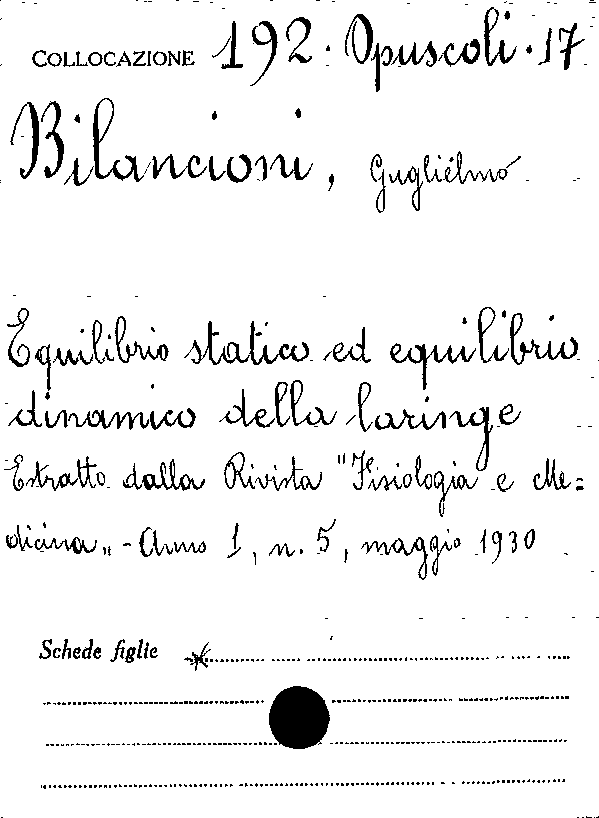 COLLOCAZIONE 192. Opuscoli. 17
Bilancioni, Guglielmo
Equilibrio statico ed equilibrio
dinamico della laringe
Estratto dalla Rivista "Fisiologia e Me=
dicina„ - Anno 1, n. 5, maggio 1930
Schede figlie